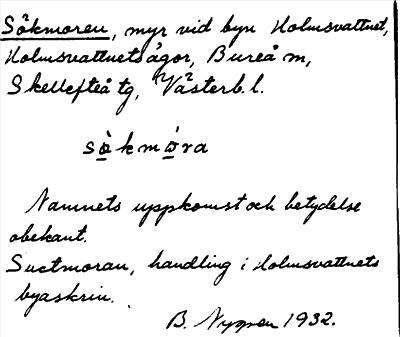 Sökmoren, myr vid byn Holmsvattnet,
Holmsvattnets ägor, Bureå sn,
Skellefteå tg, Västerb. l.
sò̱kmó̱ra
Namnets uppkomst och betydelse
obekant.
Suctmoran, handling i Holmsvattnets
byaskrin.
B. Nygren 1932.